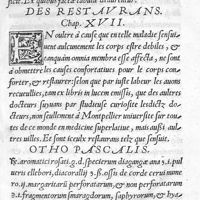 DES RESTAVRANS.
Chap. XVII.
EN oultre à cause que en telle maladie sensiuement
aulcunement les corps estre debiles, &
tanquam omnia membra esse affecta, ne sont
à obmettre les causes confortatiues pour le corps conforter,
& restaurer: selon que par iuste labeur les auons
recueillies, tant ex libris in lucem emissis, que des aultres
docteurs suyuans par studieuse curiosité lesdictz docteurs,
non seulement à Montpellier vniuersité sur toutes
de ce monde en medicine superlatiue, mais aussi
aultres villes. Et sont iceulx restaurans telz que sensuit.
OTHO PASCALIS.
aromatici rosati.g.d. specierum diagangæ ana ʒ.i. pulueris
ellebori, diacorallij ʒ.ß. ossis de corde cerui numero
.ij. margaritarū perforatarum, & non perforatarum
ʒ.i. fragmentorum smaragdorum, saphyrorum, &